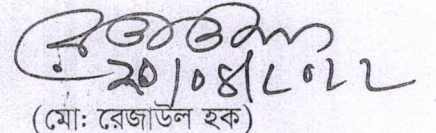 ২০/০৪/২০২২
(মো: রেজাউল হক)